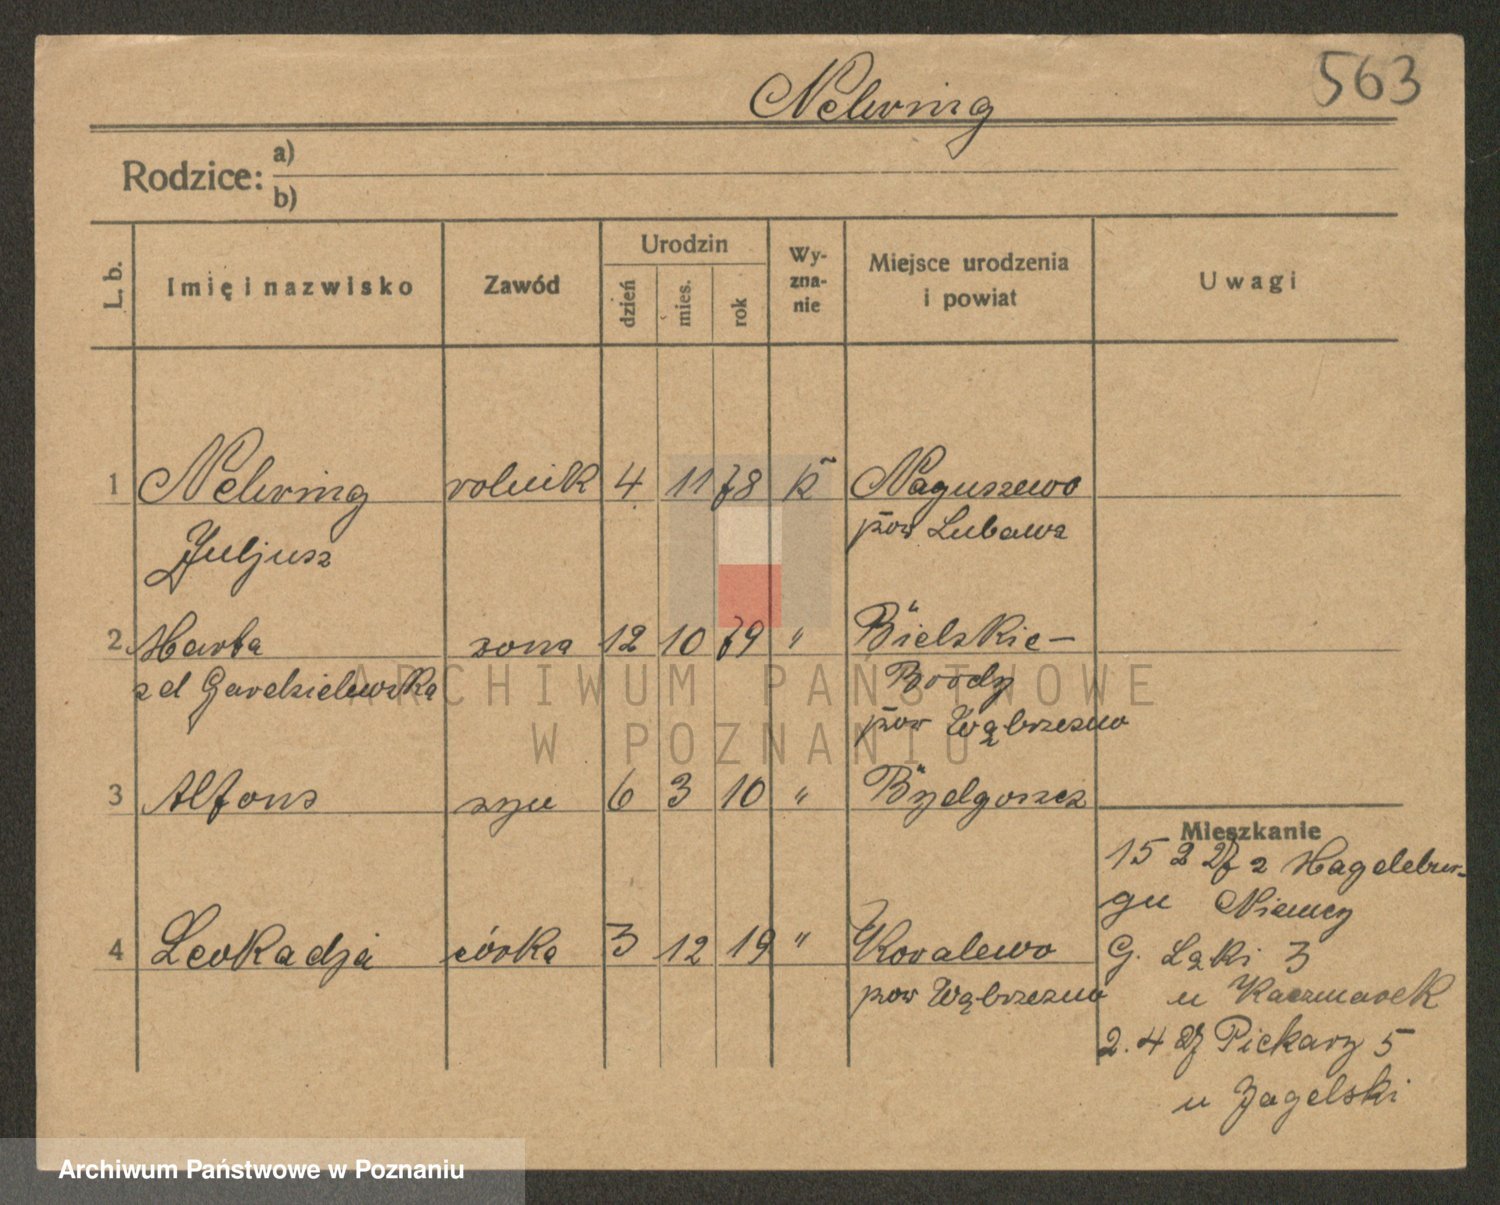 563
Nehring
Rodzice: a)
b)
L. b.
Imię i nazwisko
Zawód
Urodzin
dzień
mies.
rok
Wy-
zna-
nie
Miejsce urodzenia
i powiat
Uwagi
1 Nehring rolnik 4 11 78 k Naguszewo
Juljusz pow Lubawa
2 Marta żona 12 10 79 " Bielskie-
zd Gardzielewska Brody
pow Wąbrzeźno
3 Alfons syn 6 3 10 " Bydgoszcz
Mieszkanie
15 2 27 z Hagelber-
gu Niemcy
4 Leokadja córka 3 12 19 " Kovalewo
G. Łąki 3
pow Wąbrzezno
u Kaczmarek
2. 4 27 Piekary 5
u Jagelski
ARCHIWUM PAŃSTWOWE
W POZNANIU
Archiwum Państwowe w Poznaniu